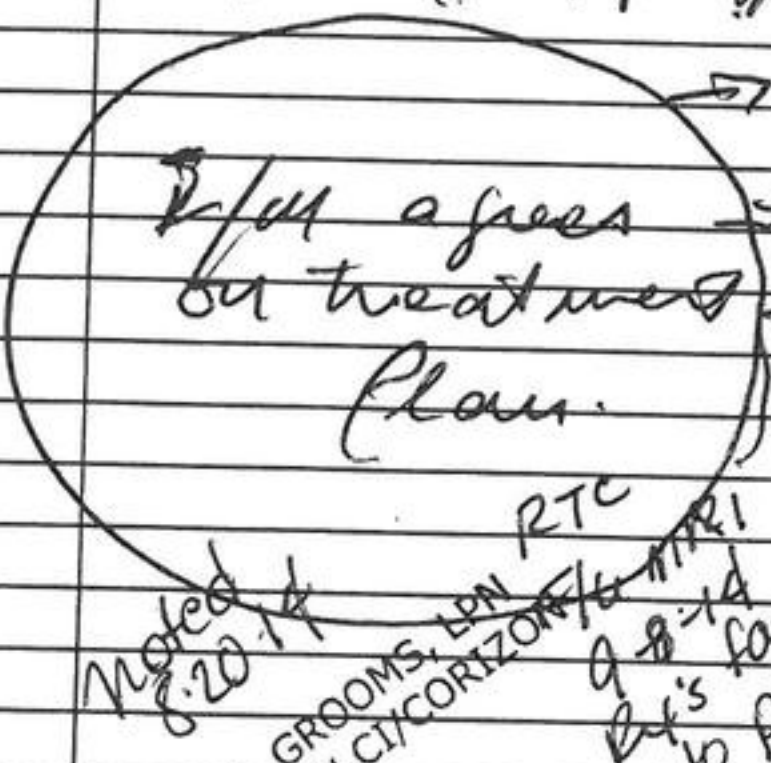 I/M agrees
on treatment
Plan.
RTC
F/U MRI
Noted
8.20.14
GROOMS, LPN
CI/CORIZON